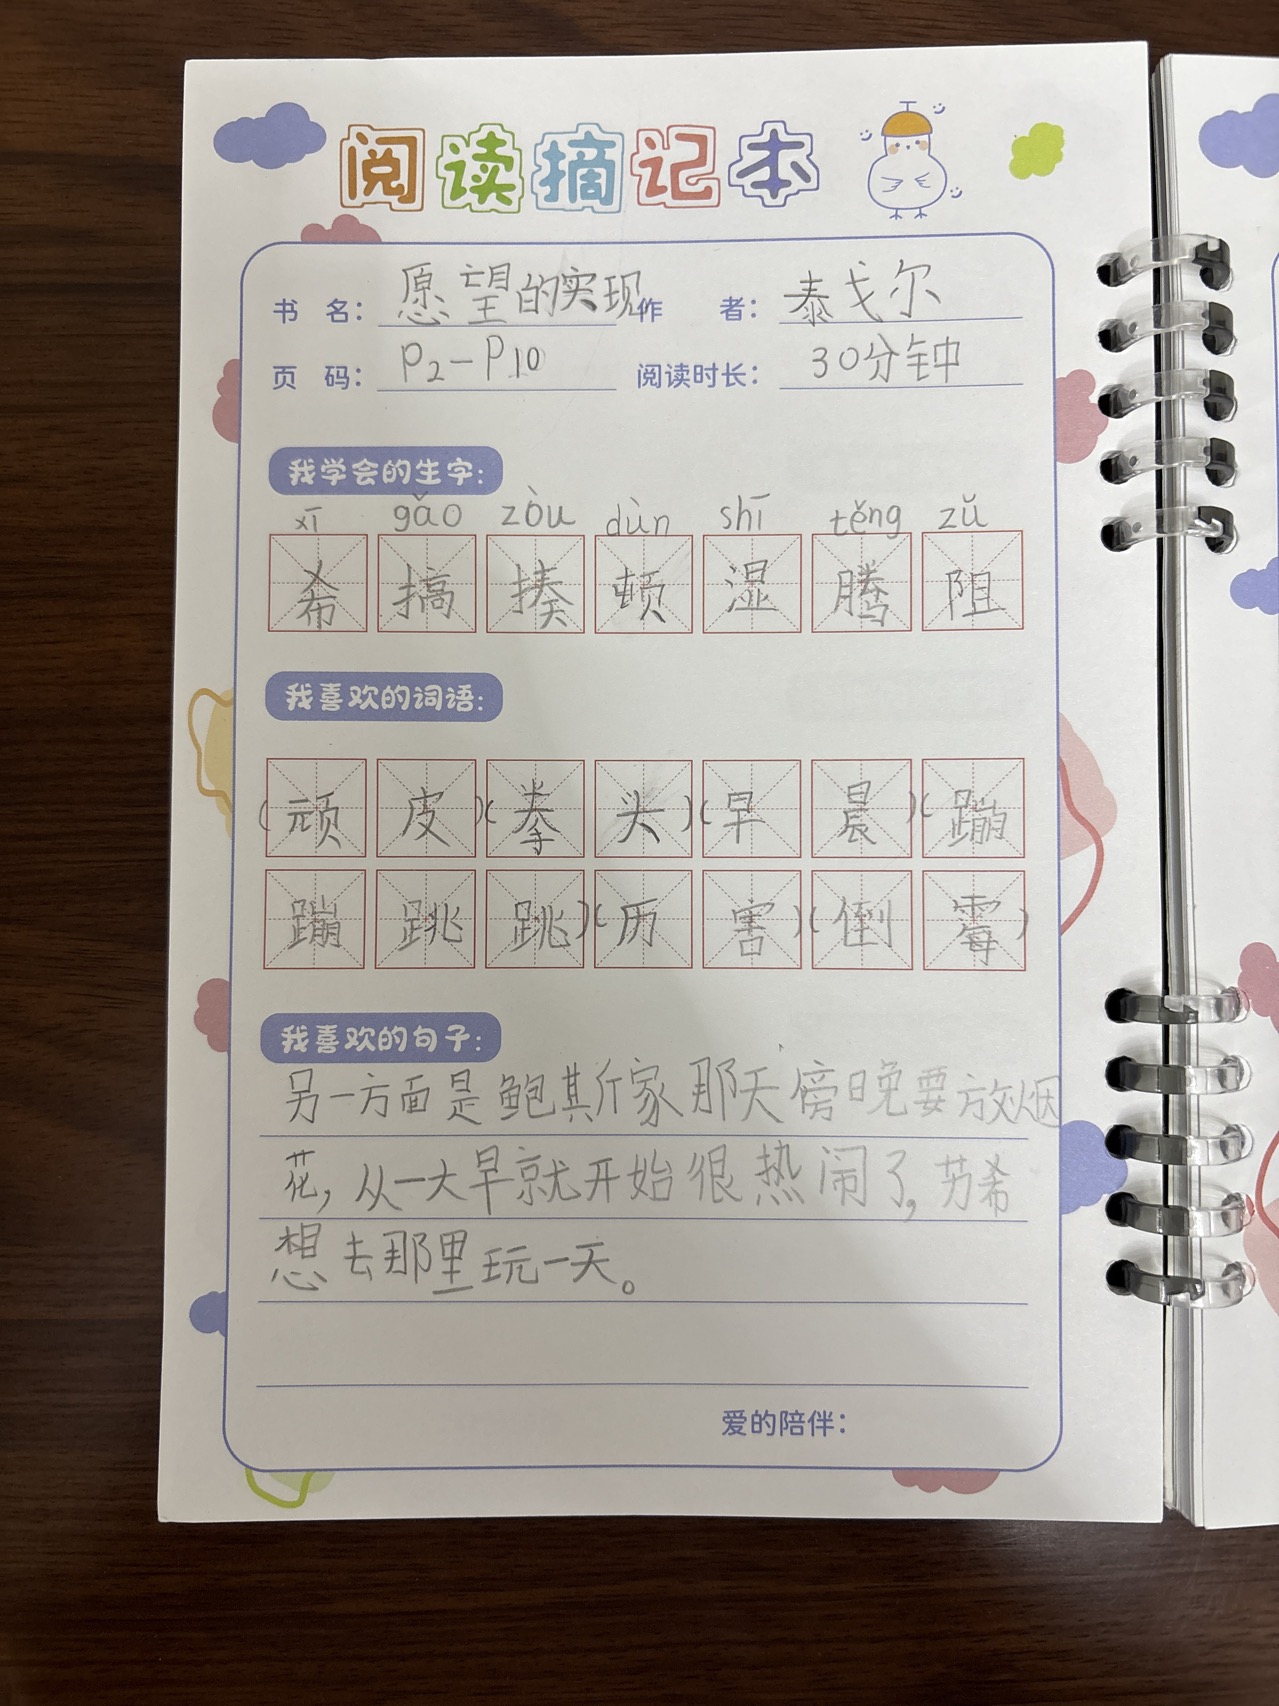 阅读摘记本
书 名： 愿望的实现 作 者： 泰戈尔
页 码： P2-P10 阅读时长： 30分钟
我学会的生字：
xī gǎo zòu dùn shī těng zǔ
希 搞 揍 顿 湿 腾 阻
我喜欢的词语：
（顽皮）（拳头）（早晨）（蹦
蹦跳跳）（厉害）（倒霉）
我喜欢的句子：
另一方面是鲍其斤家那天傍晚要放烟
花，从一大早就开始很热闹了，苏希
想去那里玩一天。
爱的陪伴：